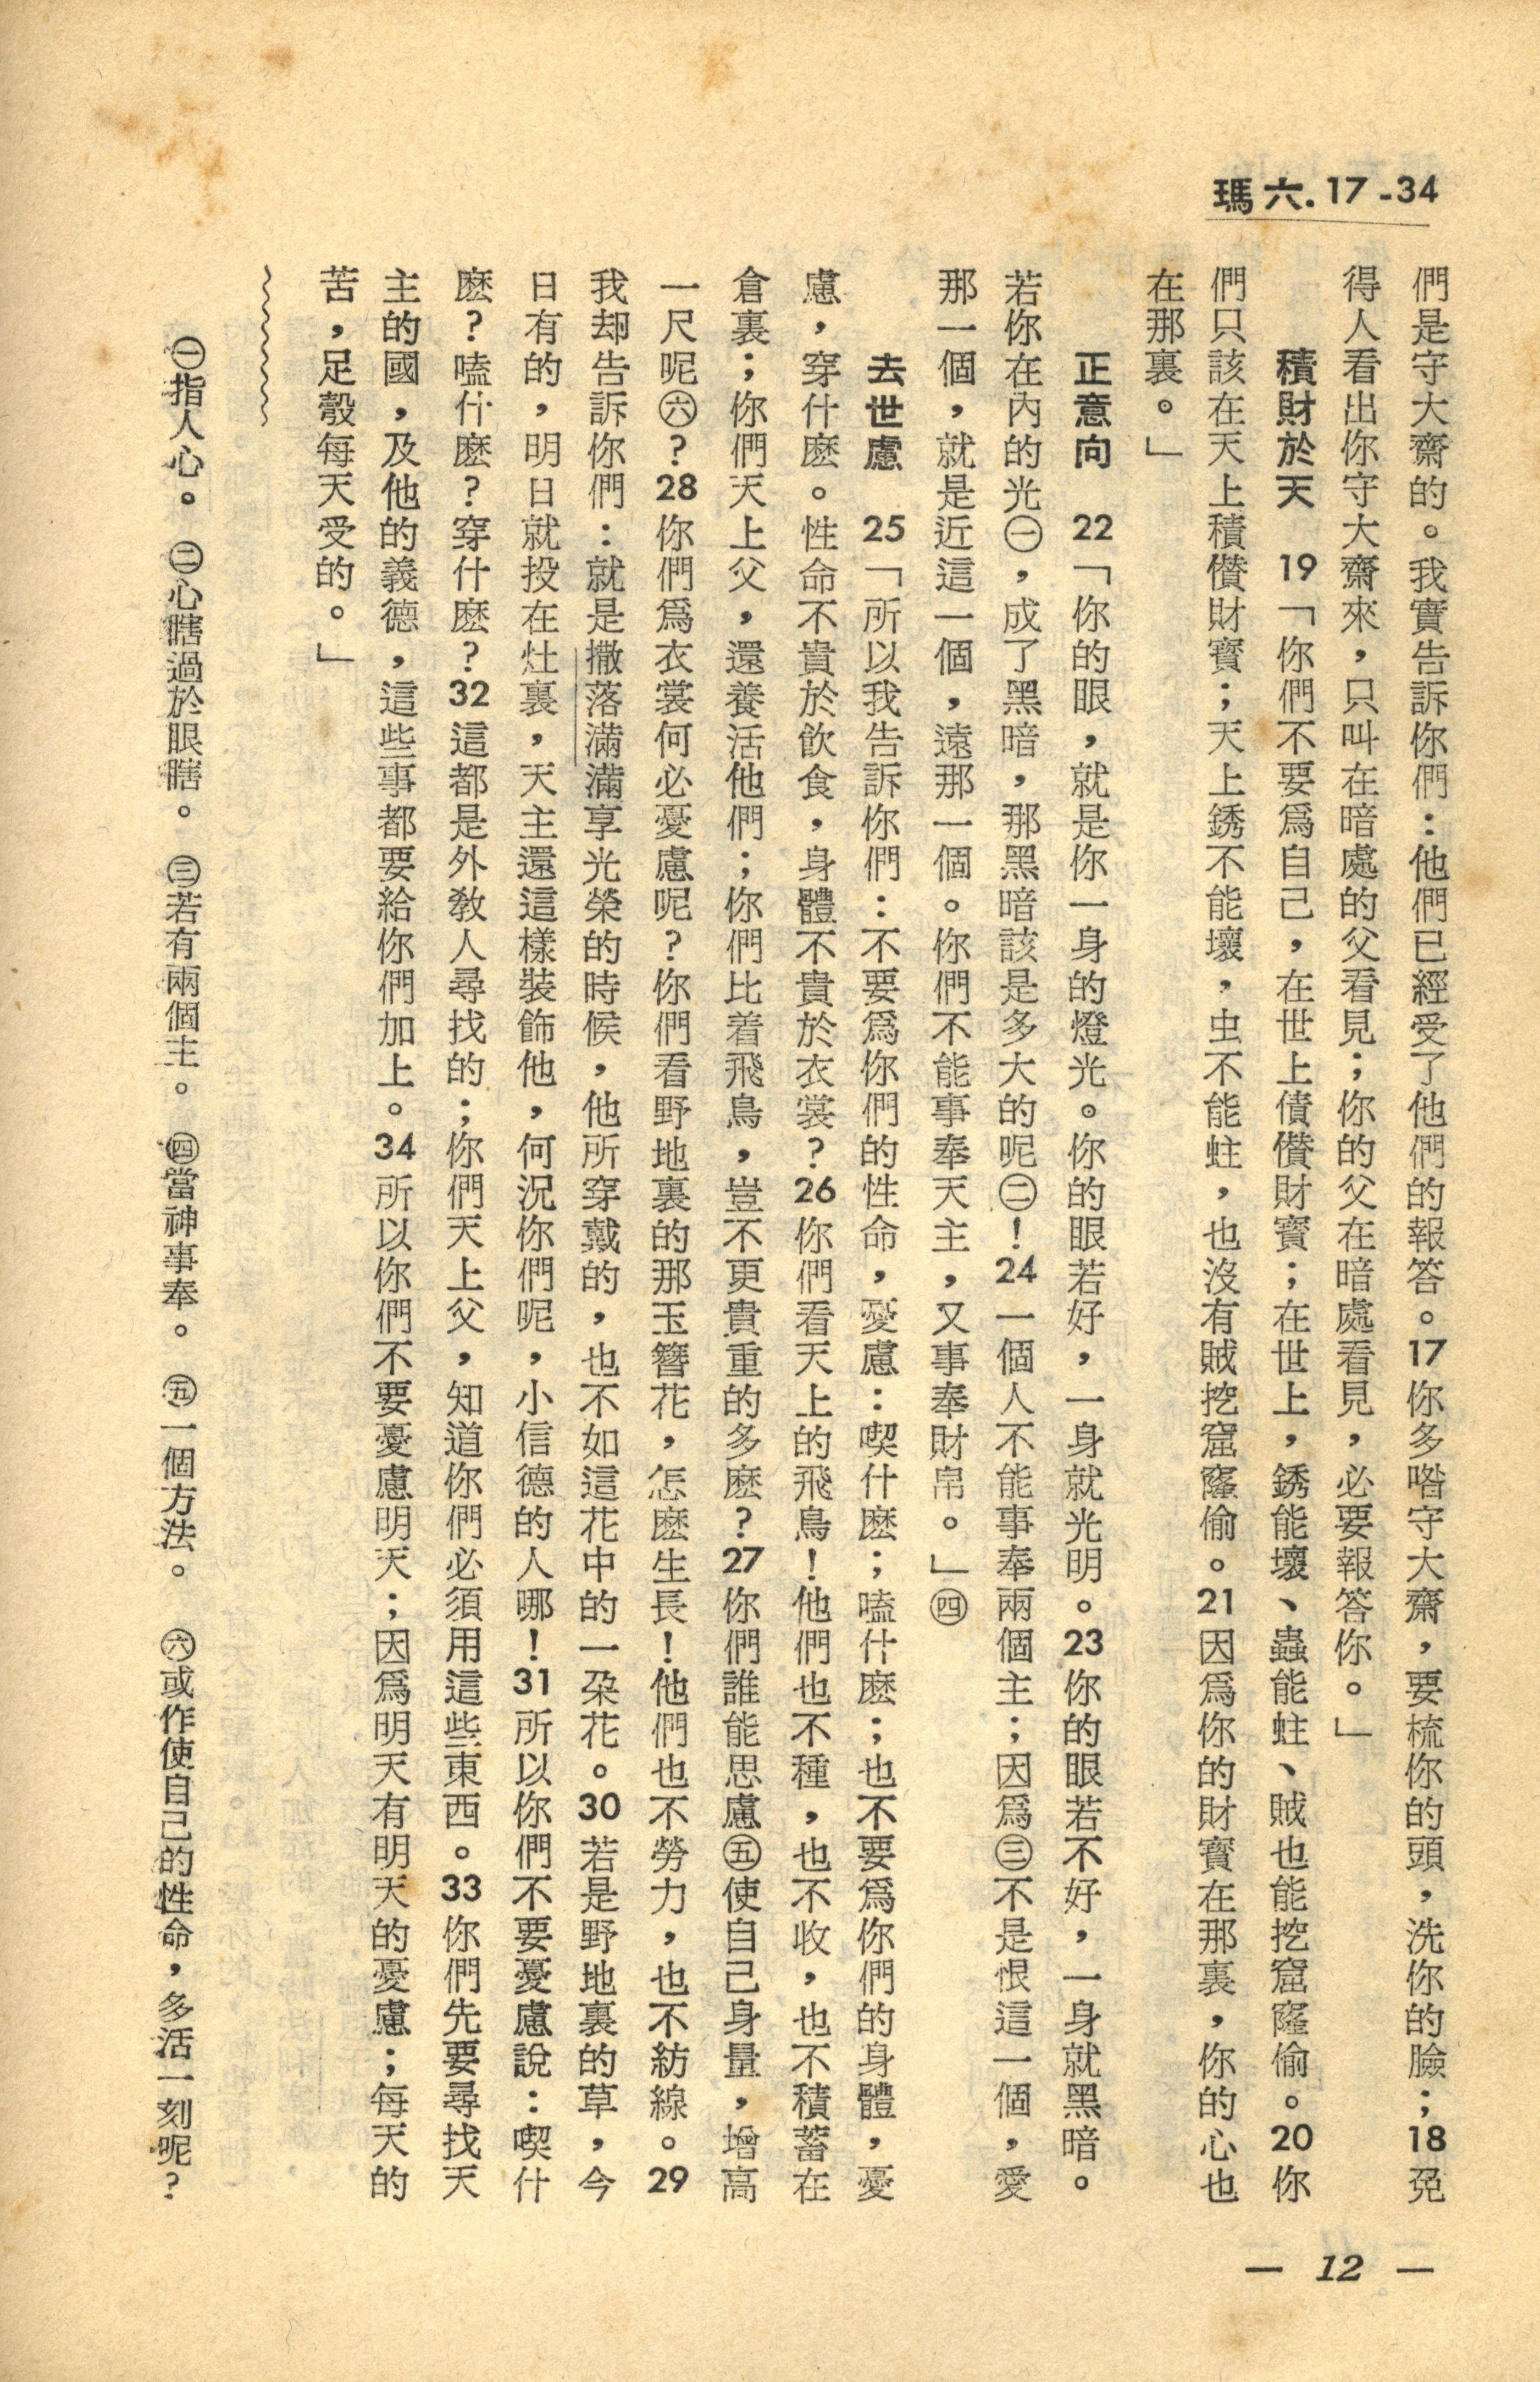 瑪六．17-34
們是守大齋的。我實告訴你們：他們已經受了他們的報答。17你多喒守大齋，要梳你的頭，洗你的臉；18免
得人看出你守大齋來，只叫在暗處的父看見；你的父在暗處看見，必要報答你。」
積財於天　19「你們不要爲自己，在世上債儹財寳；在世上，銹能壞、蟲能蛀、賊也能挖窟窿偷。20你
們只該在天上積儹財寳；天上銹不能壞，虫不能蛀，也沒有賊挖窟窿偷。21因爲你的財寳在那裏，你的心也
在那裏。」
正意向　22「你的眼，就是你一身的燈光。你的眼若好，一身就光明。23你的眼若不好，一身就黑暗。
若你在內的光㊀，成了黑暗，那黑暗該是多大的呢㊁！24一個人不能事奉兩個主；因爲㊂不是恨這一個，愛
那一個，就是近這一個，遠那一個。你們不能事奉天主，又事奉財帛。」㊃
去世慮　25「所以我告訴你們：不要爲你們的性命，憂慮：喫什麽；嗑什麽；也不要爲你們的身體，憂
慮，穿什麽。性命不貴於飲食，身體不貴於衣裳？26你們看天上的飛鳥！他們也不種，也不收，也不積蓄在
倉裏；你們天上父，還養活他們；你們比着飛鳥，豈不更貴重的多麽？27你們誰能思慮㊄使自己身量，增高
一尺呢㊅？28你們爲衣裳何必憂慮呢？你們看野地裏的那玉簪花，怎麽生長！他們也不勞力，也不紡線。29
我却告訴你們：就是撒落滿滿享光榮的時候，他所穿戴的，也不如這花中的一朶花。30若是野地裏的草，今
日有的，明日就投在灶裏，天主還這樣裝飾他，何況你們呢，小信德的人哪！31所以你們不要憂慮說：喫什
麽？嗑什麽？穿什麽？32這都是外教人尋找的；你們天上父，知道你們必須用這些東西。33你們先要尋找天
主的國，及他的義德，這些事都要給你們加上。34所以你們不要憂慮明天；因爲明天有明天的憂慮；每天的
苦，足彀每天受的。」
㊀指人心。　㊁心瞎過於眼瞎。　㊂若有兩個主。　㊃當神事奉。　㊄一個方法。　㊅或作使自己的性命，多活一刻呢？
— 12 —